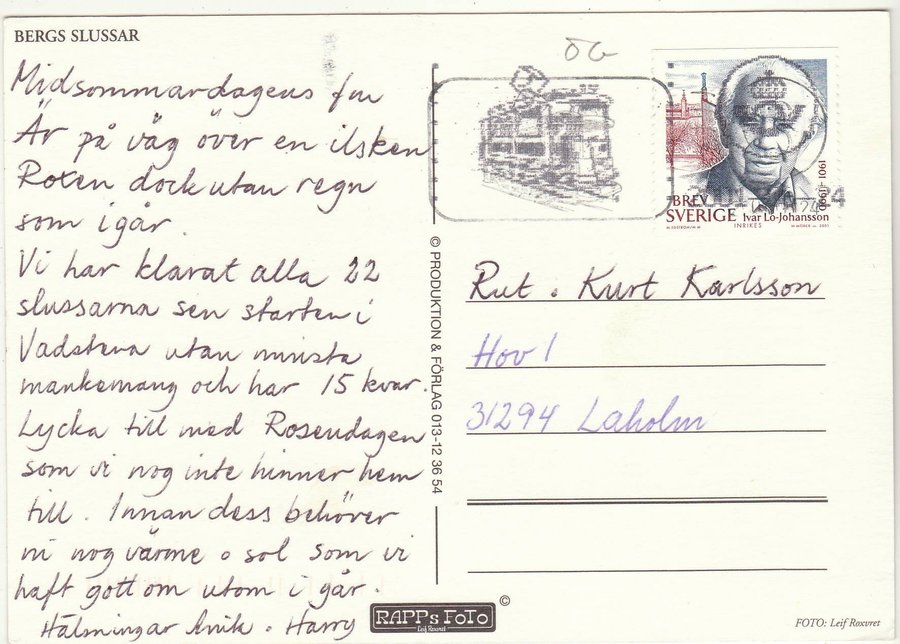 BERGS SLUSSAR
Midsommardagens fm
Är på väg över en ilsken
Roxen dock utan regn
som igår.
Vi har klarat alla 22
slussarna sen starten i
Vadstena utan minsta
mankemang och har 15 kvar.
Lycka till med Rosendagen
som vi nog inte hinner hem
till. Innan dess behöver
ni nog värme o sol som vi
haft gott om utom i går.
Hälsningar Anik. Harry
© PRODUKTION & FÖRLAG 013-12 36 54
ÖG
1901-1990
BREV
SVERIGE Ivar Lo-Johansson
INRIKES
Rut o Kurt Karlsson
Hov 1
31294 Laholm
RAPPs FoTo ©
Leif Roxvret
FOTO: Leif Roxvret